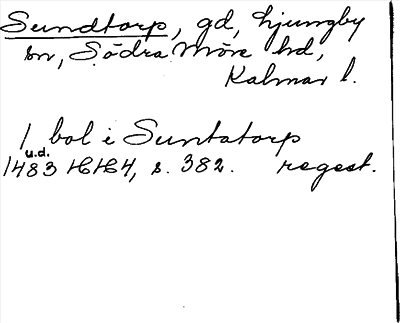 Sundtorp, gd, Ljungby
sn, Södra Möre hd,
Kalmar l.
1 bol i Suntatorp
u.d.
1483 HH4, s. 382. regest.